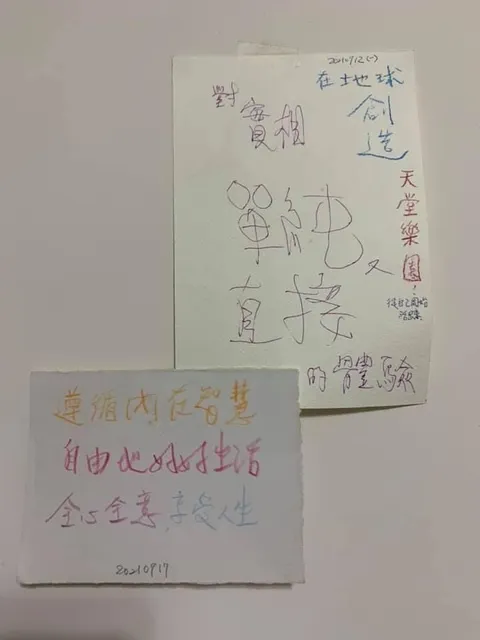 20210912(一)
在地球
創造
天堂樂園!
從自己開始
對
實相
單純
又
直接
的體驗
遵循內在智慧
自由地好好生活
全心全意,享受人生
20210917